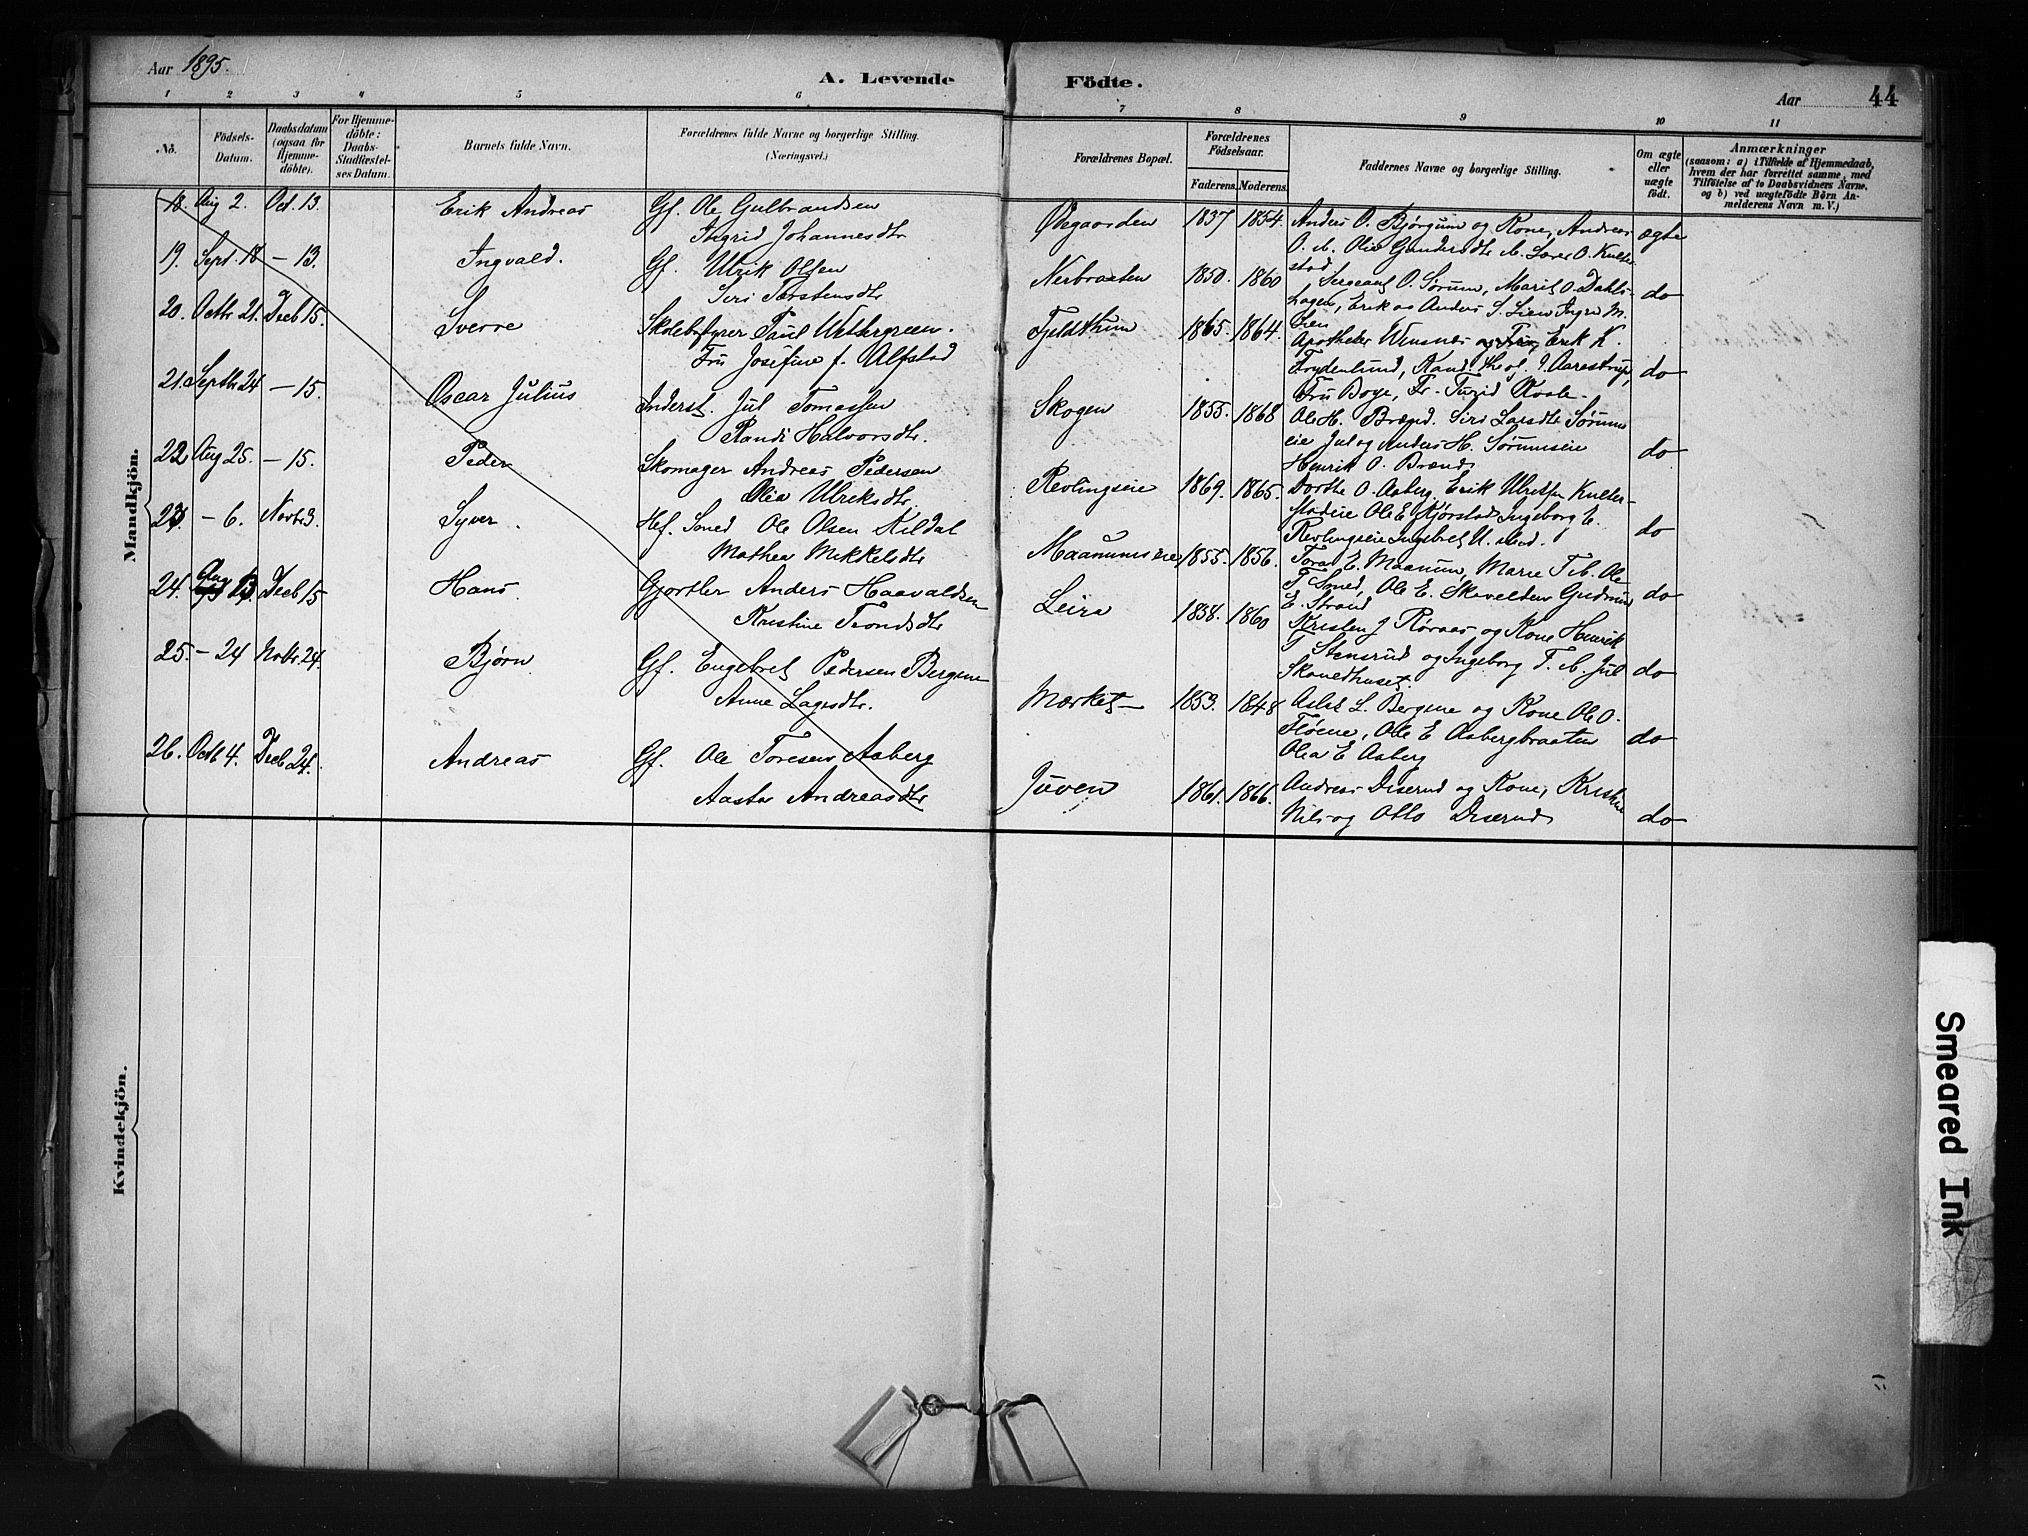 Aar 1895.
A. Levende Födte.
Aar 44
1 2 3 4 5 6 7 8 9 10 11
No.
Födsels-
Datum.
Daabsdatum
(ogsaa för
Hjemme-
döbte).
For Hjemme-
döbte:
Daabs-
Stadfæstel-
ses Datum.
Barnets fulde Navn.
Forældrenes fulde Navne og borgerlige Stilling.
(Næringsvei.)
Forældrenes Bopæl.
Forældrenes
Födselsaar.
Faderens. Moderens.
Faddernes Navne og borgerlige Stilling.
Om ægte
eller
uægte
födt.
Anmærkninger
(saasom: a) i Tilfælde af Hjemmedaab,
hvem der har forrettet samme, med
Tilföielse af to Daabsvidners Navne,
og b) ved uægtefödte Börn An-
melderens Navn m. V.)
Mandkjön.
18. Aug 2. Oct. 13. Erik Andreas Gf. Ole Gulbrandsen
Ingrid Johannesdtr
Øvegaarden 1837 1854. Anders O. Bjørgum og Kone, Andreas ægte
O. M. Olia Gundersdtr
19. Sept 18 – 13. Ingvald. Gf. Ulrik Olsen
Siri Torstensdtr
Nerbraaten 1850. 1860 Sergeant O. Sørum, Marit O. Dahls- do
hagen, Erik og Anders S. Lien Ingri M.
Lien
20. Octbr 21. Decb 15. Sverre Skolebestyrer Paul Wetergreen.
Fru Josefine f. Alfstad
Fjeldheim 1865. 1864. Apotheker Wensnes og Fru, Erik K.
Frydenlund, Kand. theol. J. Aarestrup, do
Fru Boye, Fr. Turid Kvale
21. Septb 24 – 15. Oscar Julius Inderst. Jul Tomassen
Randi Halvorsdtr.
Skogen 1855. 1868 Ole H. Brænd. Siri Larsdtr Sørums
eie Jul og Anders H. Sørumseie do
Henrik O. Brænd
22 Aug 25. – 15. Peder Skomager Andreas Pedersen
Olia Ulriksdtr.
Revlingseie 1869. 1865. Dorthe O. Aaberg. Erik Ulriksen Kulter-
stadeie Ole E. Kjørstad Ingeborg E. do
Revlingseie Ingebret U.
23. – 6. Novb 3. Syver. Hf. Smed Ole Olsen Kildal
Mathea Mikkelsdtr
Maanumseie 1855. 1856. Tora E. Maanum, Marie T. M. Ole
T. Smed, Ole E. Skavelden Gudmund do
E. Strand
24. Aug 13. Decb 15 Hans. Gjørtler Anders Haavaldsen
Kristine Trondsdtr
Leira 1858. 1860 Kristen J Røraas og Kone Henrik
T Stensrud og Ingeborg T. M. Jul do
Skavedhuset.
25. – 24 Novbr. 24. Bjørn Gf. Engebret Pedersen Bergene
Anne Lagesdtr.
Market 1853. 1848 Aslak L. Bergene og Kone Ole O.
Fløene, Ole E Aabergbraaten do
Olea E Aaberg
26. Octb 4. Decb 24. Andreas Gf. Ole Toresen Aaberg
Aasta Andreasdtr
Juven 1861. 1866. Andreas Diserud og Kone, Kristen
Nils og Otto Diserud do
Kvindekjön.
Smeared Ink